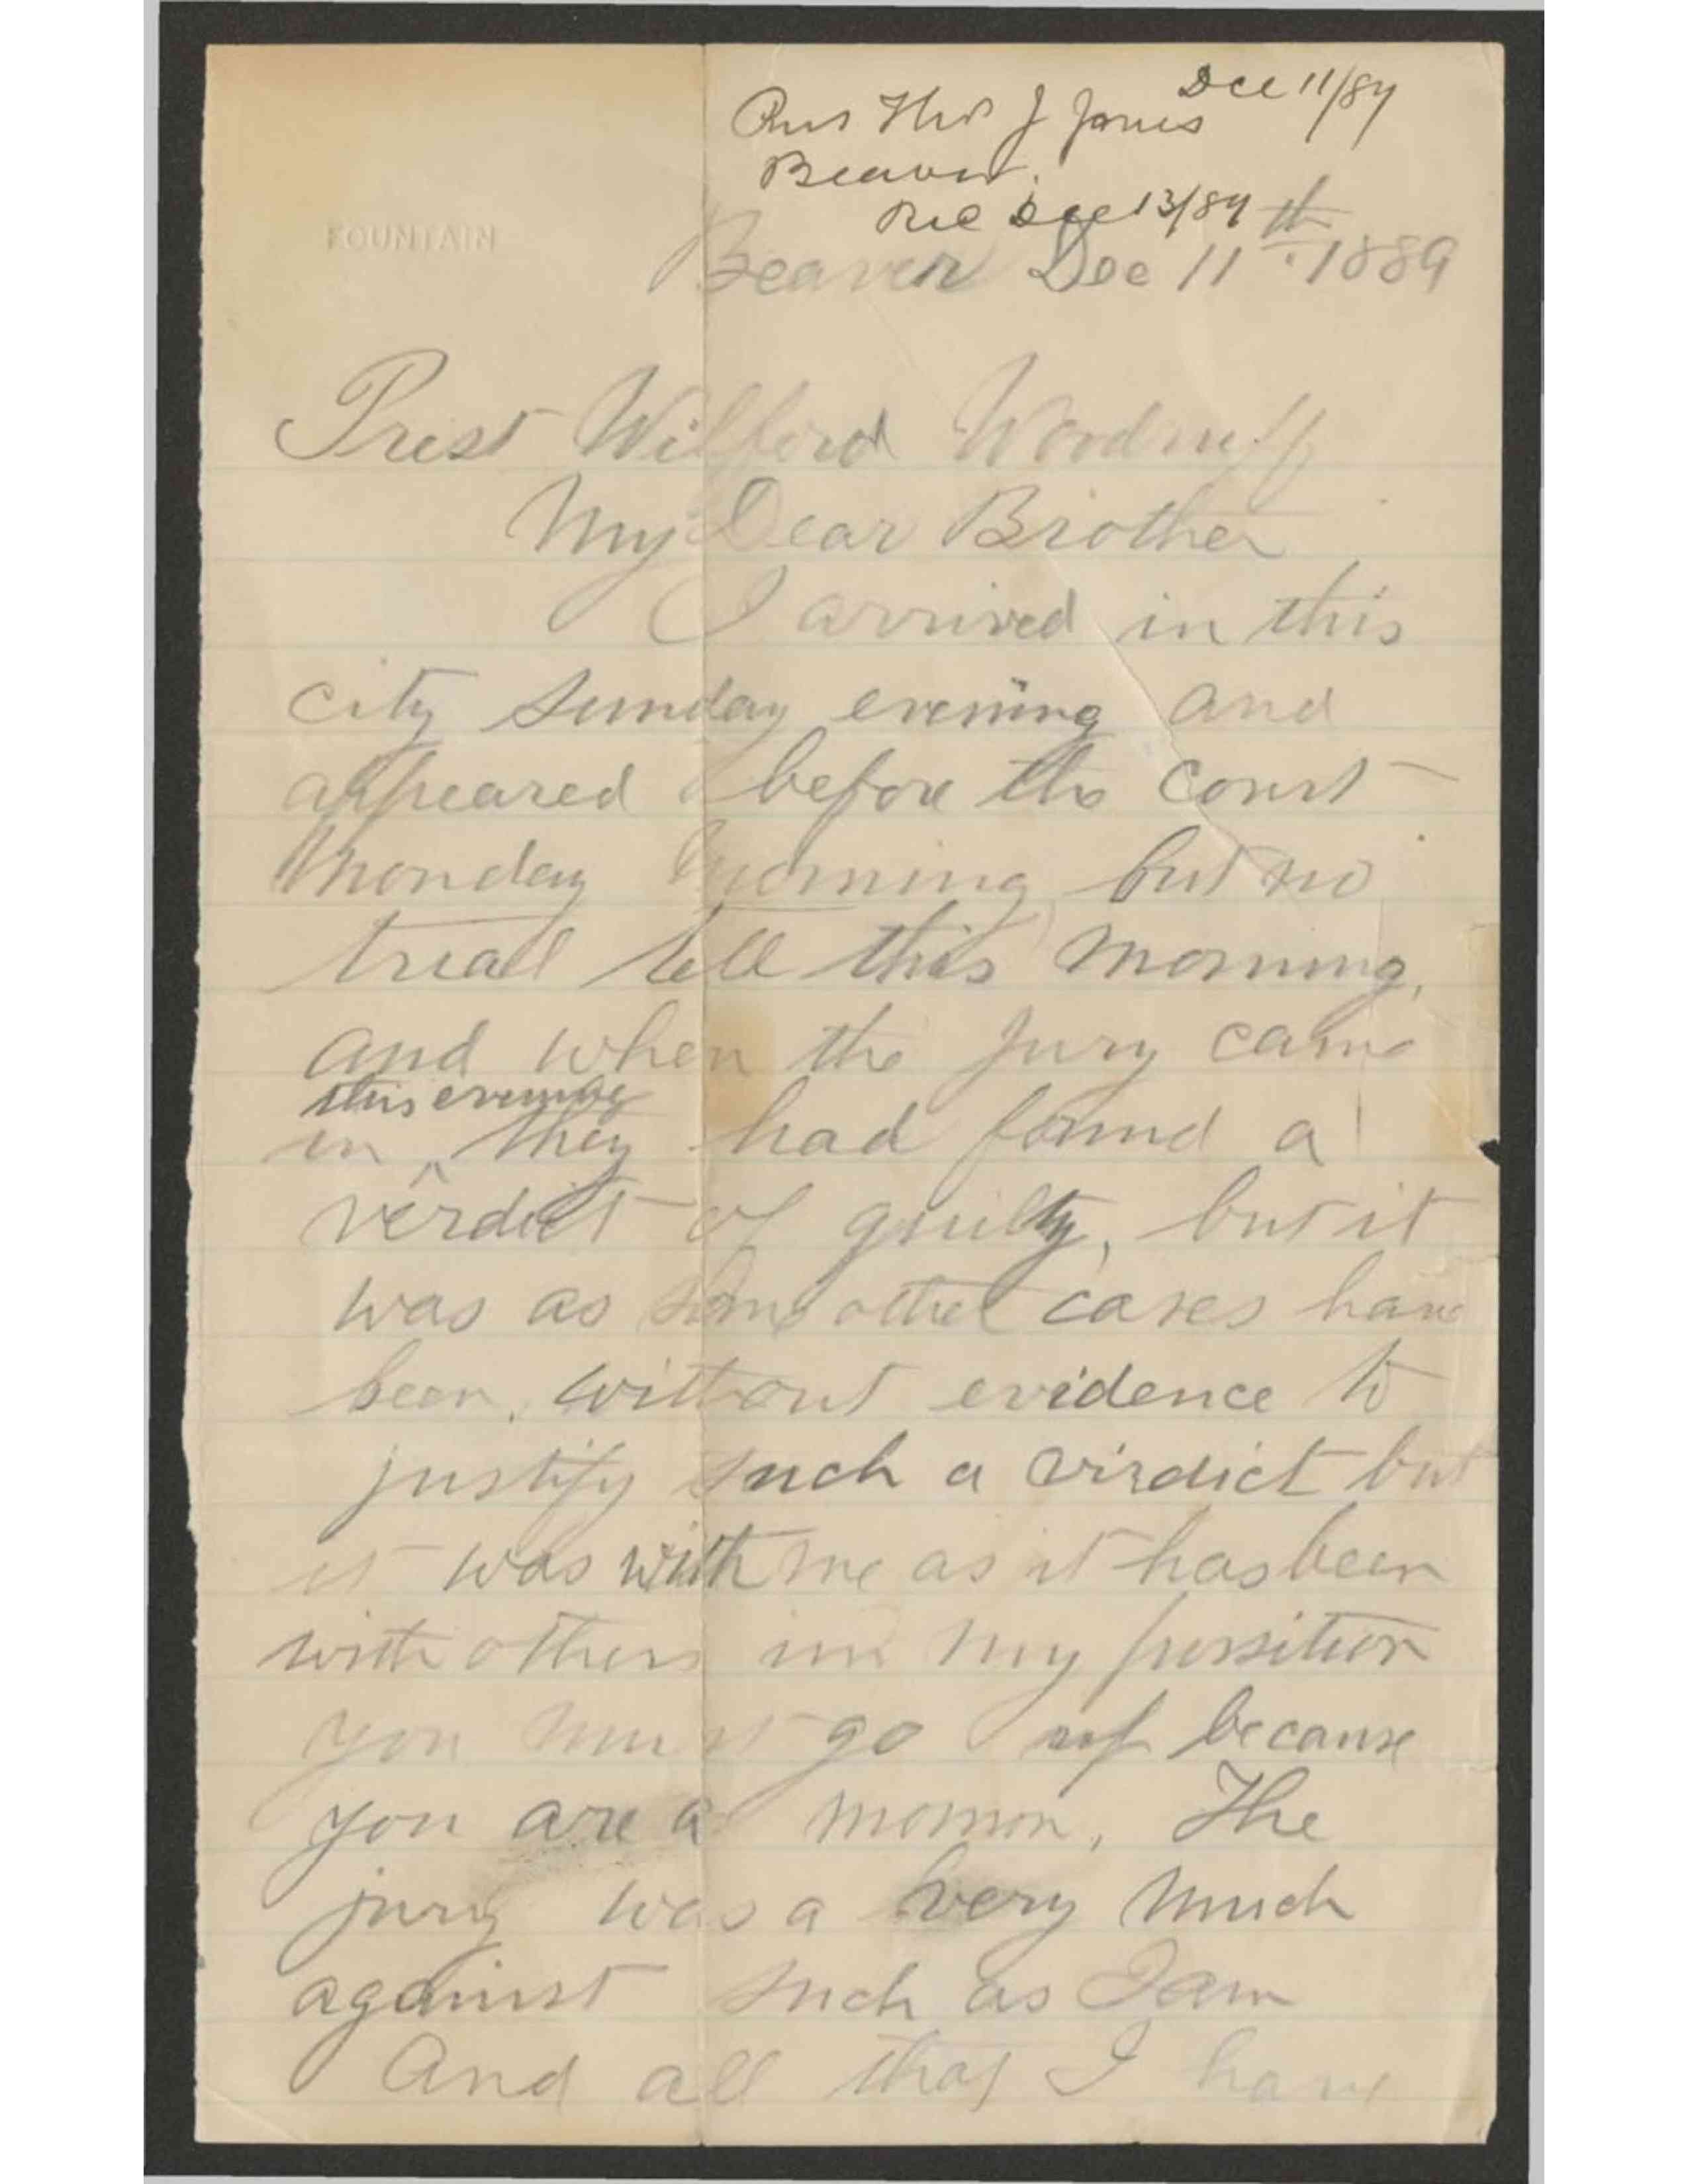 Dec 11/89
Pres Thos J Jones
Beaver.
Rec Dec 13/89
FOUNTAIN
Beaver Dec 11th. 1889
Prest Wilford Woodruff
My Dear Brother
I arrived in this
city Sunday evening and
appeared before the Court
Monday morning but no
trial till this morning,
and when the Jury came
this evening
in ^ they had found a
verdict of guilty, but it
was as some other cases have
been, without evidence to
justify such a virdict but
it was with me as it has been
with others in my possition
you must go up because
you are a momon. The
jury was a very much
against such as I am
And all that I have